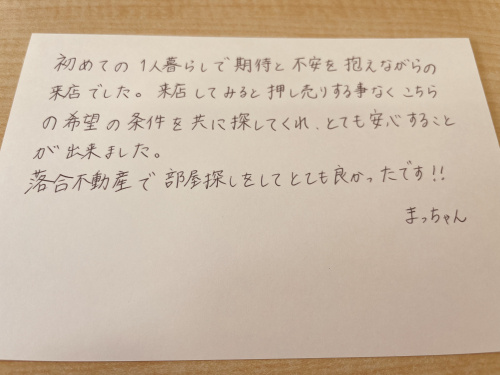 初めての1人暮らしで期待と不安を抱えながらの
来店でした。来店してみると押し売りする事なくこちら
の希望の条件を共に探してくれ、とても安心すること
が出来ました。
落合不動産で部屋探しをしてとても良かったです!!
まっちゃん